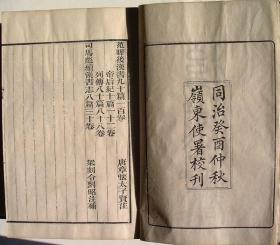 同治癸酉仲秋
嶺東使署校刊
范曄後漢書九十篇一百卷
帝后紀十篇十二卷
列傳八十篇八十八卷
唐章懷太子賢注
司馬彪續漢書志八篇三十卷
梁剡令劉昭注補